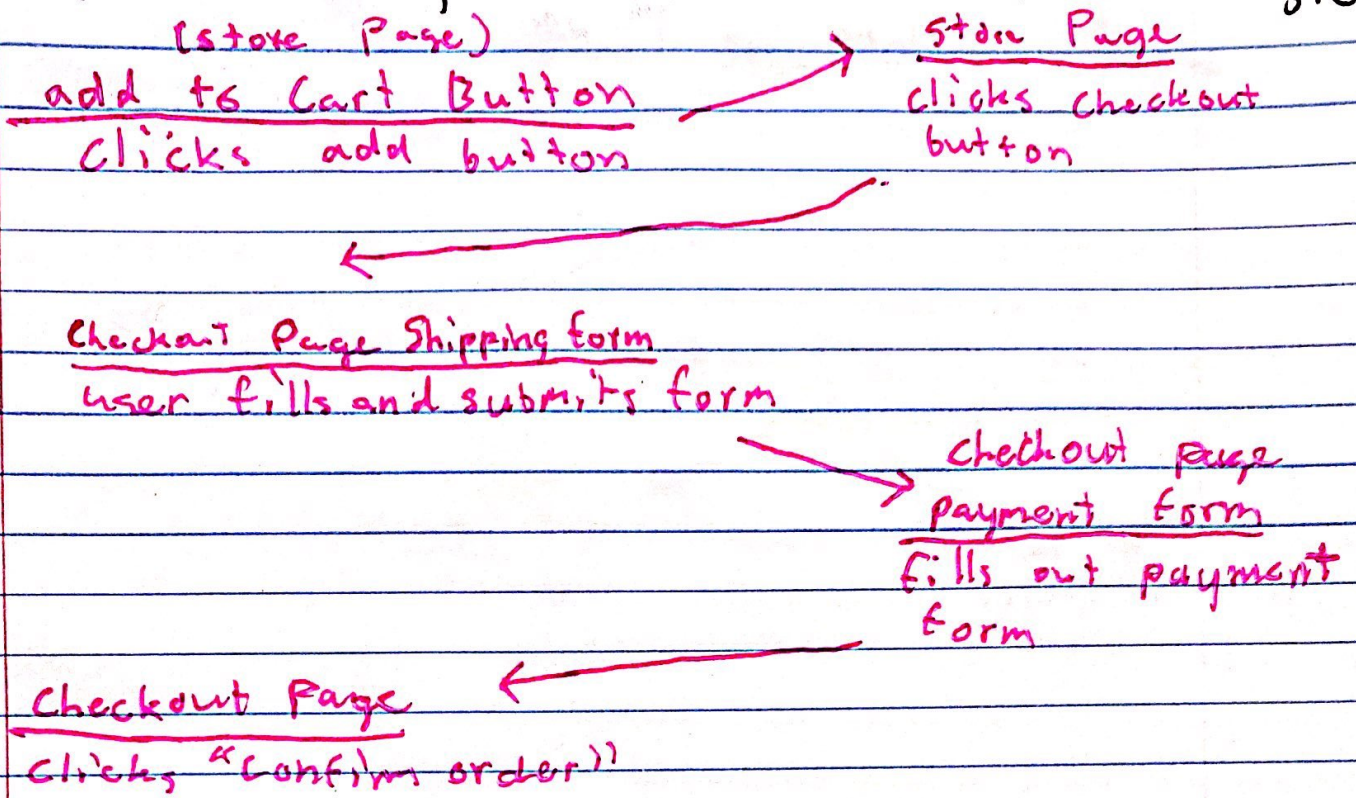 (store Page)
add to Cart Button
Clicks add button
Store Page
clicks checkout
button
Checkout Page Shipping form
user fills and submits form
checkout page
payment form
fills out payment
form
Checkout Page
Clicks "Confirm order"